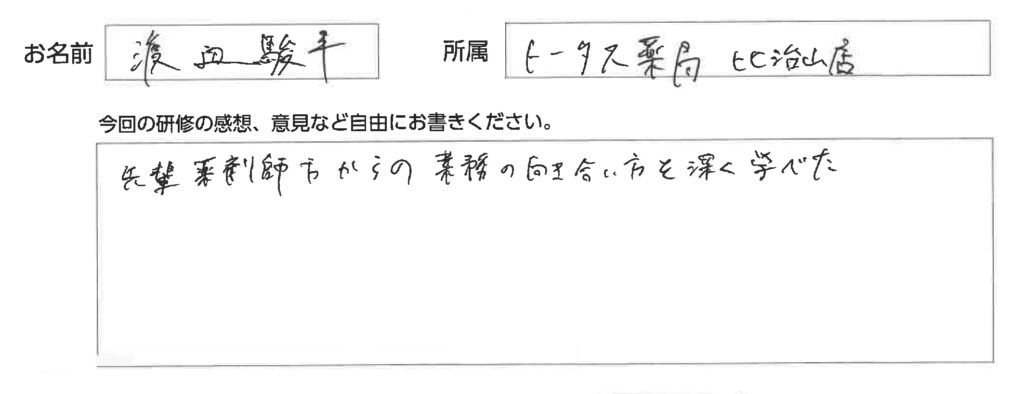 お名前 渡辺駿平 所属 トータス薬局 比治山店
今回の研修の感想、意見など自由にお書きください。
先輩薬剤師方からの業務の向き合い方を深く学べた